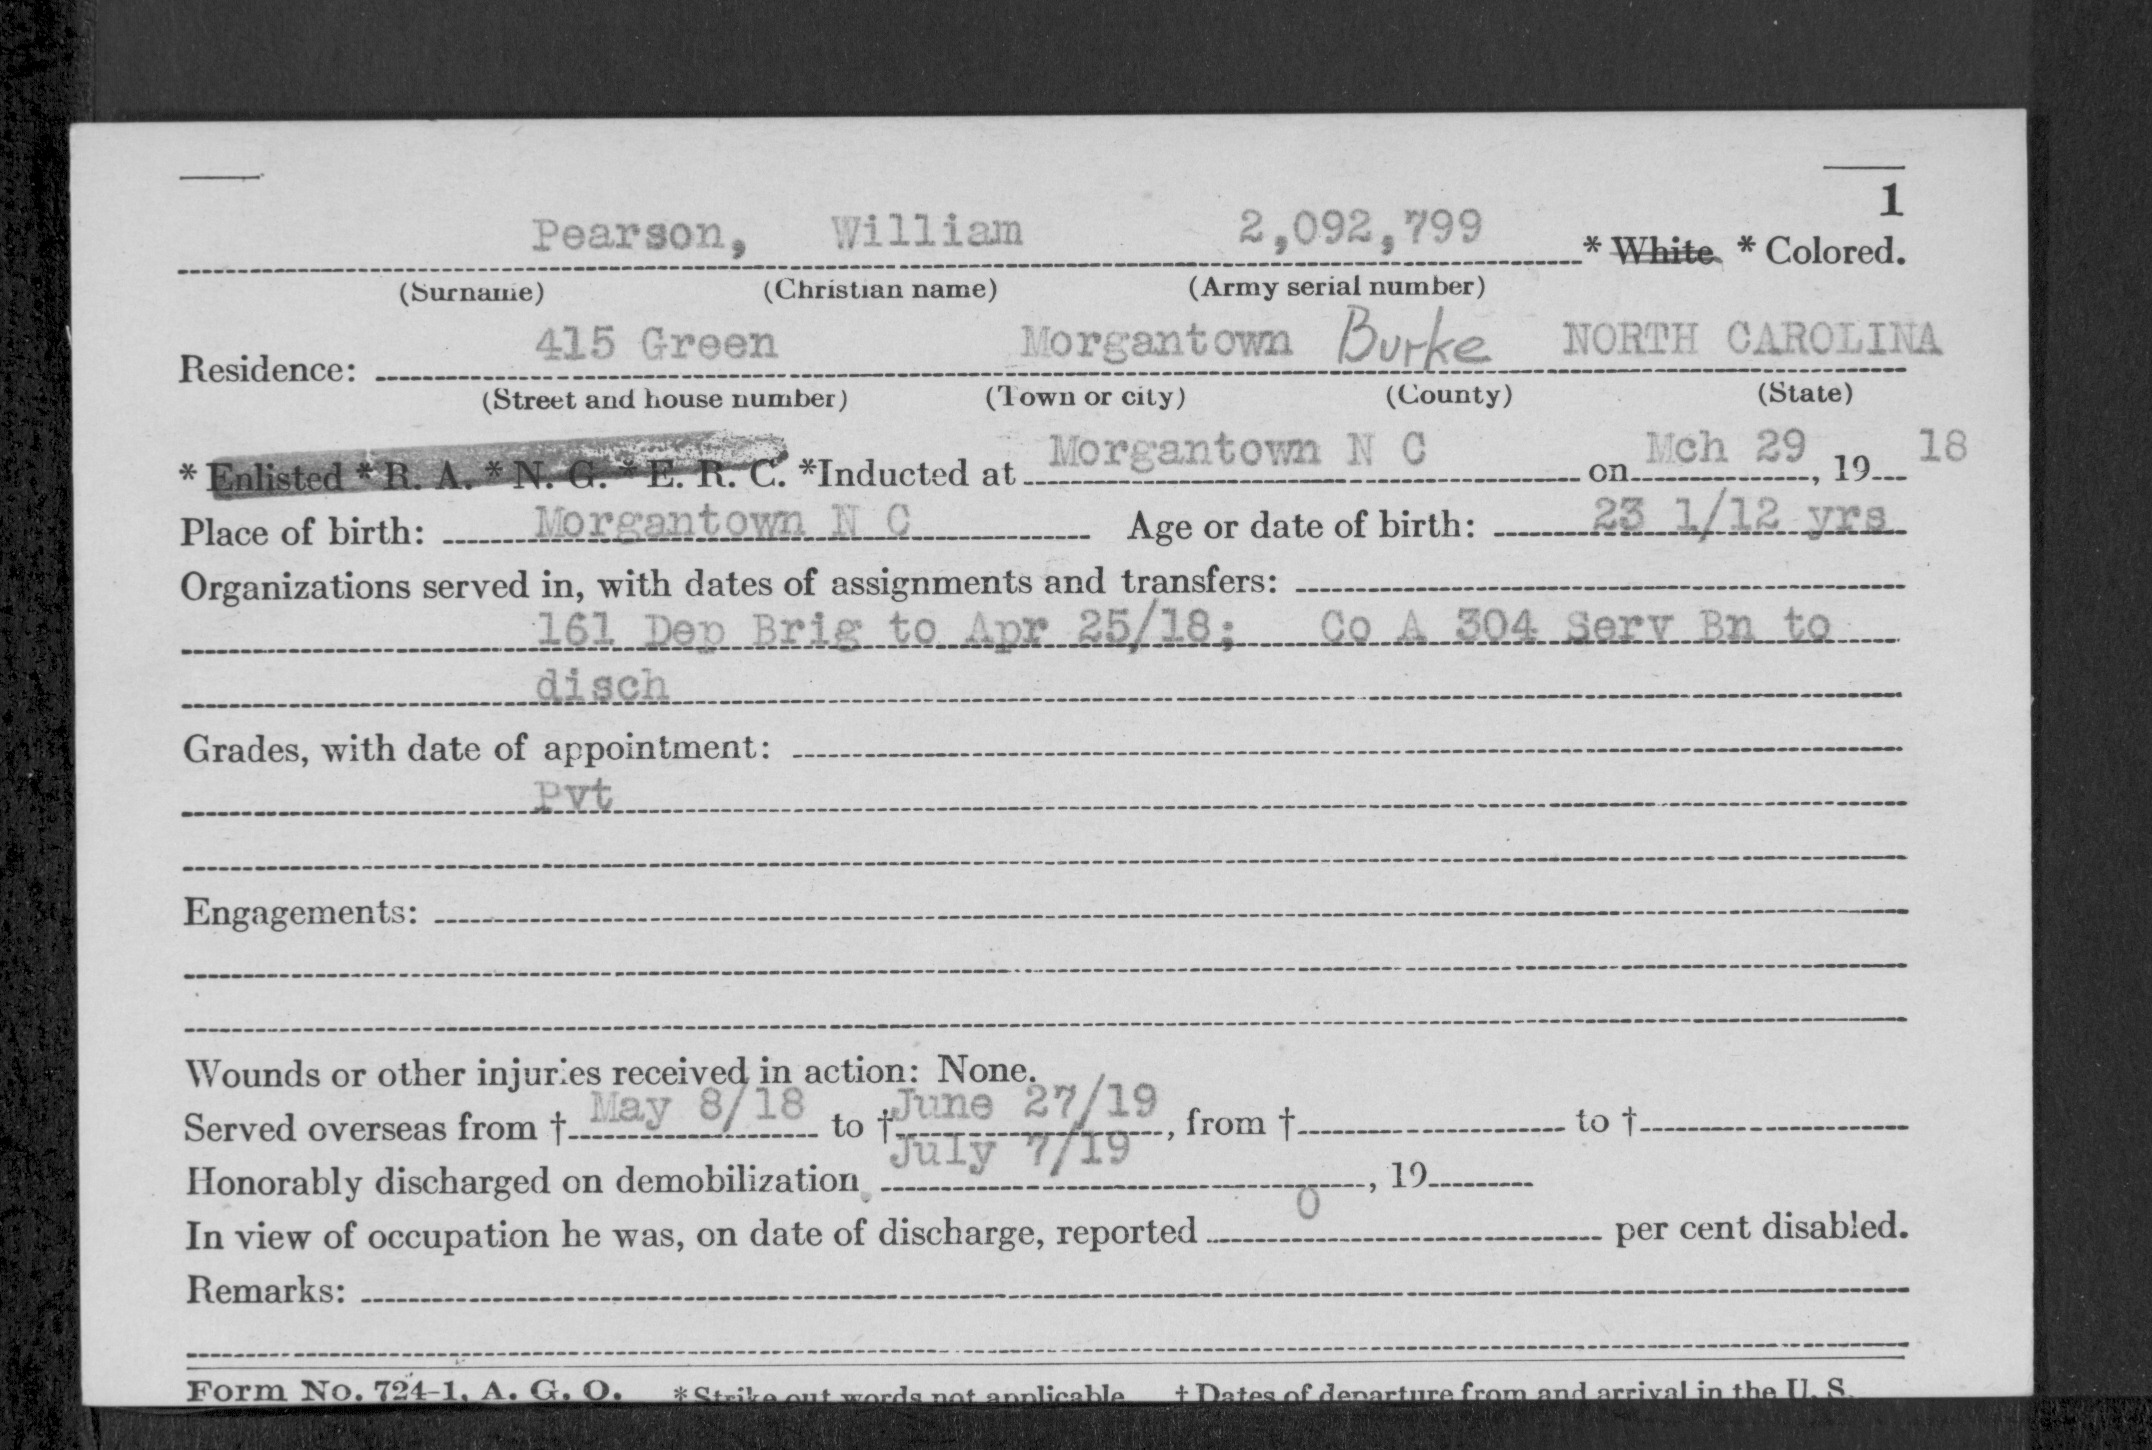 1
Pearson, William 2,092,799 * White * Colored.
(Surname) (Christian name) (Army serial number)
Residence: 415 Green Morgantown Burke NORTH CAROLINA
(Street and house number) (Town or city) (County) (State)
* Enlisted * R. A. * N. G. * E. R. C. *Inducted at Morgantown N C on Mch 29, 19 18
Place of birth: Morgantown N C Age or date of birth: 23 1/12 yrs
Organizations served in, with dates of assignments and transfers:
161 Dep Brig to Apr 25/18; Co A 304 Serv Bn to
disch
Grades, with date of appointment:
Pvt
Engagements:
Wounds or other injuries received in action: None.
Served overseas from † May 8/18 to † June 27/19, from † to †
Honorably discharged on demobilization July 7/19, 19
In view of occupation he was, on date of discharge, reported 0 per cent disabled.
Remarks:
Form No. 724-1, A. G. O. * Strike out words not applicable † Dates of departure from and arrival in the U. S.